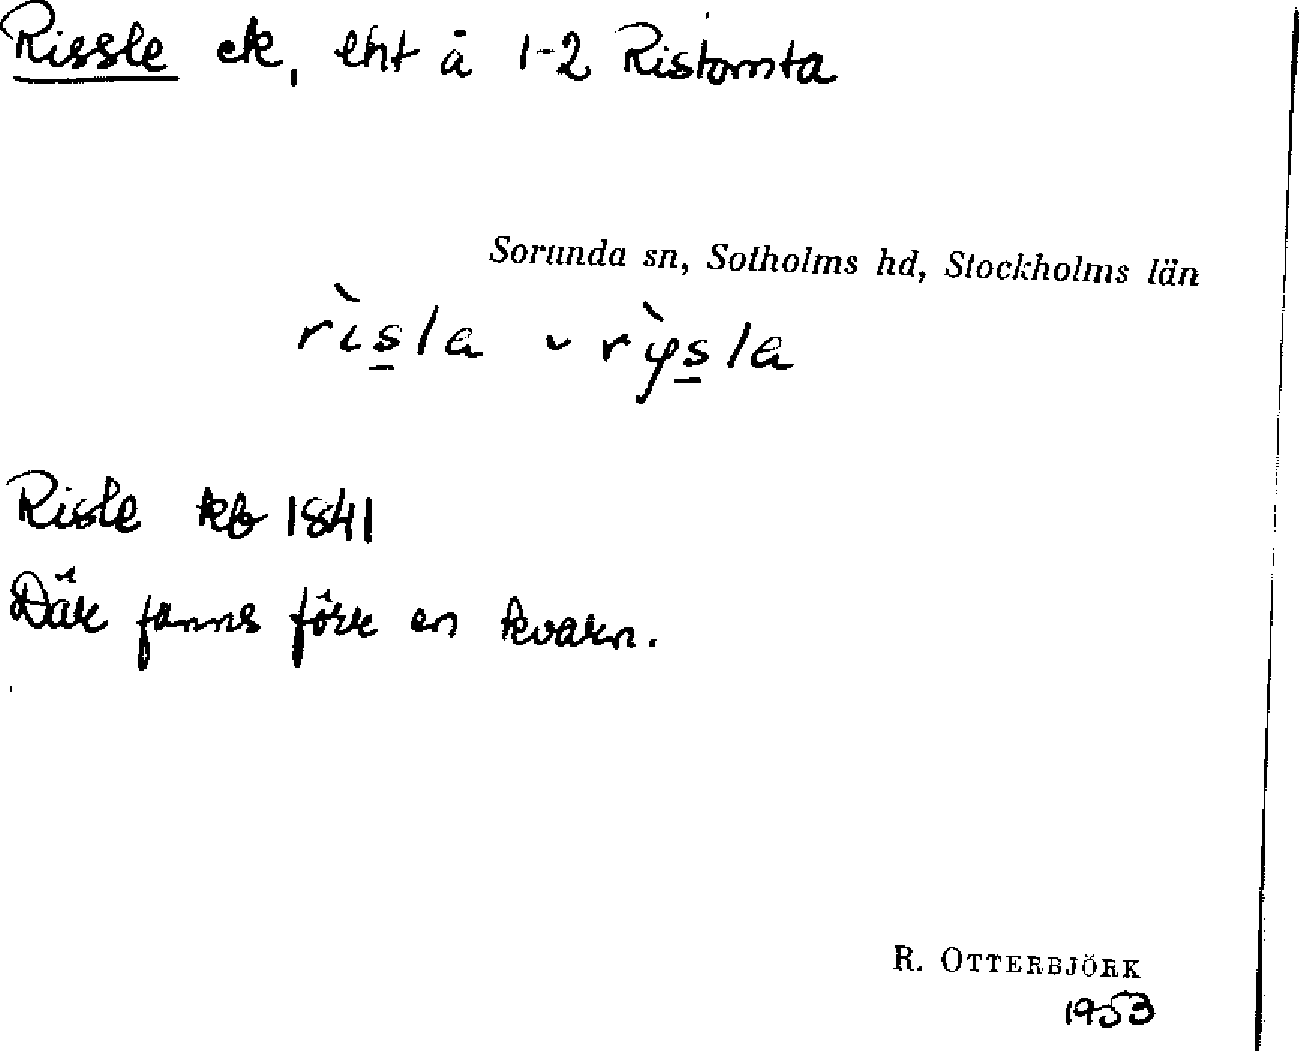 Rissle ck, lht å 1-2 Ristomta
Sorunda sn, Sotholms hd, Stockholms län
rìsla ᴗ rỳsla
Risle kb 1841
Där fanns förr en kvarn.
R. OTTERBJÖRK
1953